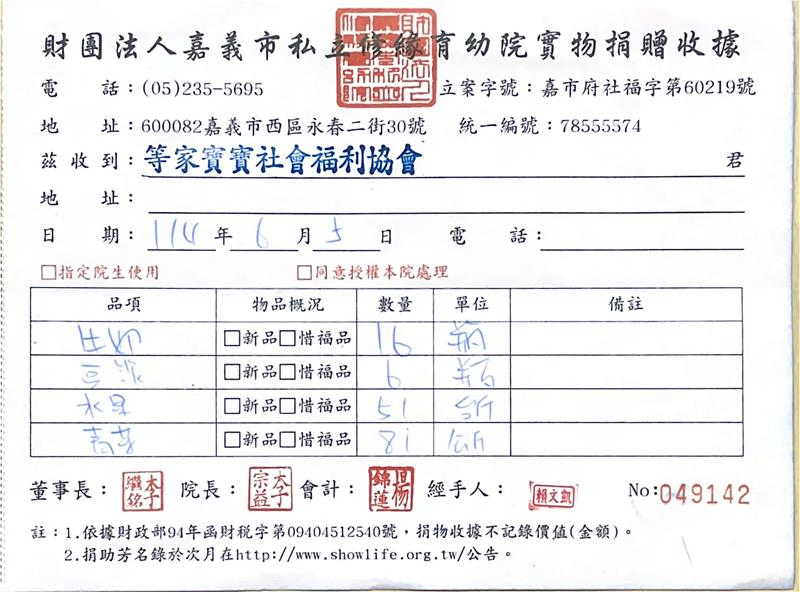 財團法人嘉義市私立修緣育幼院實物捐贈收據
電　話：(05)235-5695　立案字號：嘉市府社福字第60219號
地　址：600082嘉義市西區永春二街30號　統一編號：78555574
茲收到：等家寶寶社會福利協會　君
地　址：
日　期：114年6月5日　電　話：
□指定院生使用　□同意授權本院處理
品項　物品概況　數量　單位　備註
□新品□惜福品
□新品□惜福品
□新品□惜福品
□新品□惜福品
董事長：　院長：李宗益　會計：楊錦蓮　經手人：賴文凱　No:049142
註：1.依據財政部94年函財税字第09404512540號，捐物收據不記錄價值(金額)。
2.捐助芳名錄於次月在http://www.showlife.org.tw/公告。